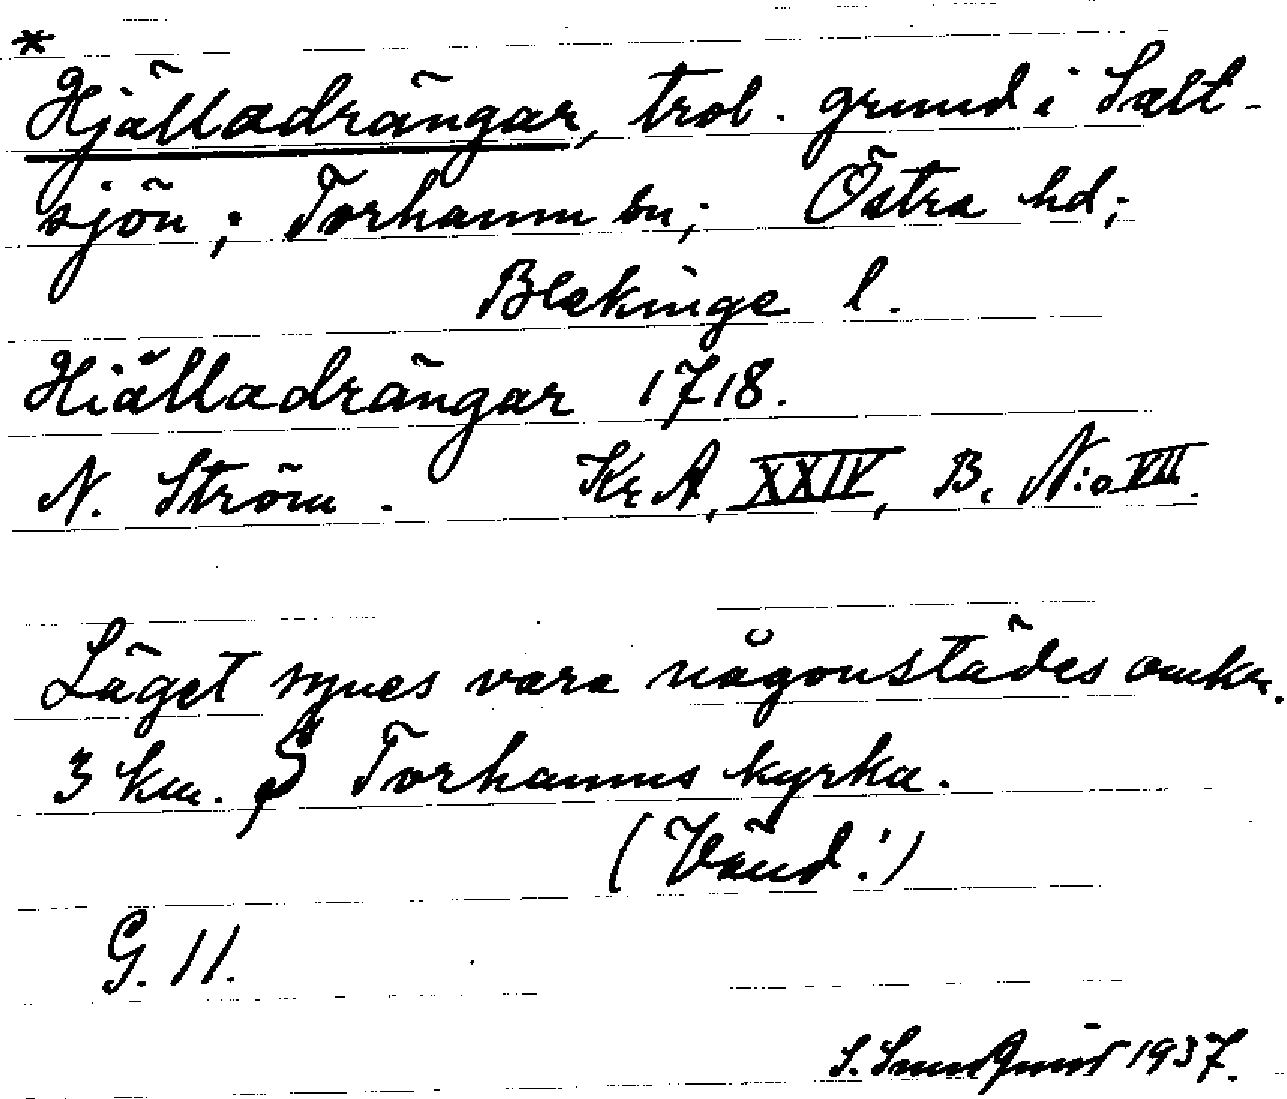 *
Hjälladrängar, trol. grund i Salt-
sjön; Torhamn sn; Östra hd;
Blekinge l.
Hiälladrängar 1718.
N. Ström. Kr A, XXIV, B. N:o VII.
Läget synes vara någonstädes omkr.
3 km. S Torhamns kyrka.
(Vänd!)
G. 11.
S. 1937.